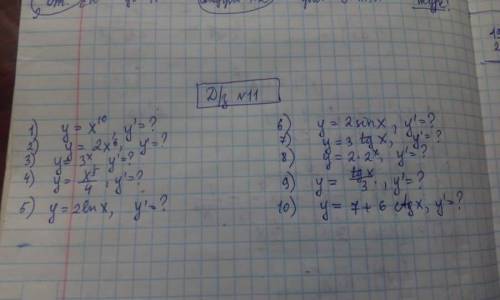 Д/з №11
1) y = x¹⁰, y'=?
2) y = 2x⁶, y=?
3) y= 3ˣ, y'=?
4) y= x⁵/4, y'=?
5) y=2lnx, y'=?
6) y = 2sinx, y'=?
7) y=3 tgx, y'=?
8) y=2·2ˣ, y'=?
9) y= tgx/3, y'=?
10) y= 7+6 ctgx, y'=?